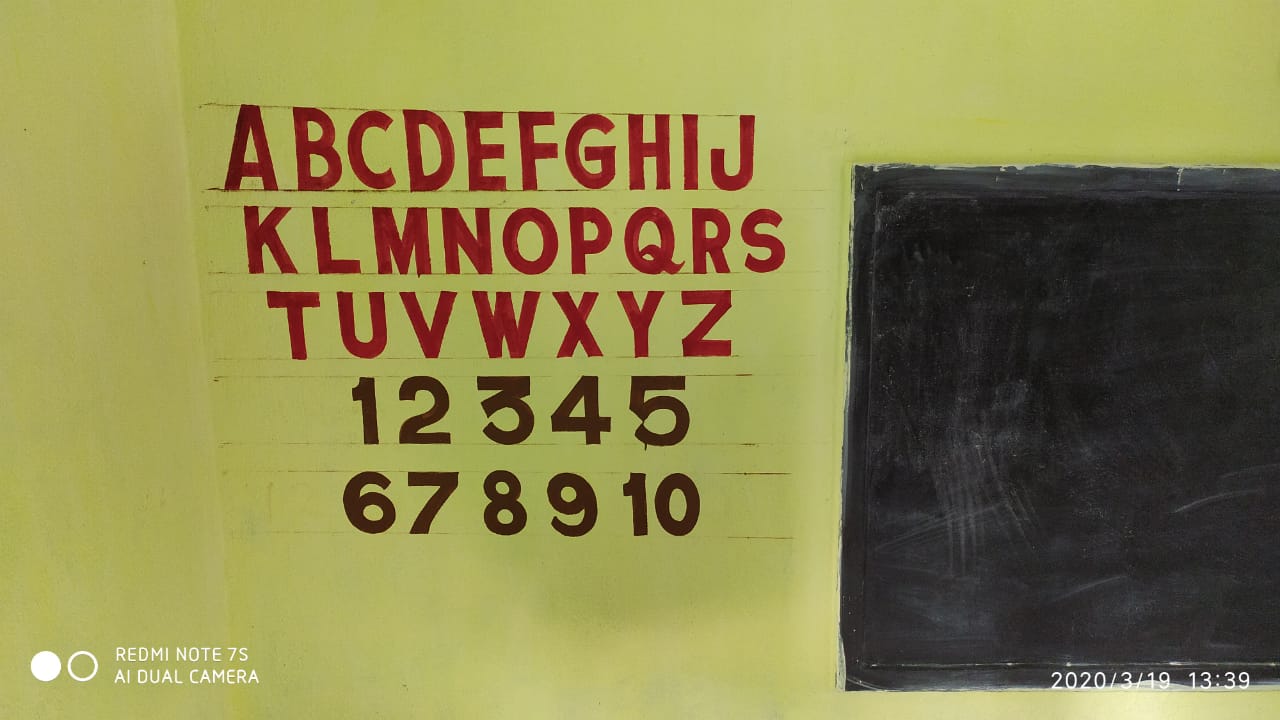 ABCDEFGHIJ
KLMNOPQRS
TUVWXYZ
12345
678910
REDMI NOTE 7S
AI DUAL CAMERA
2020/3/19 13:39